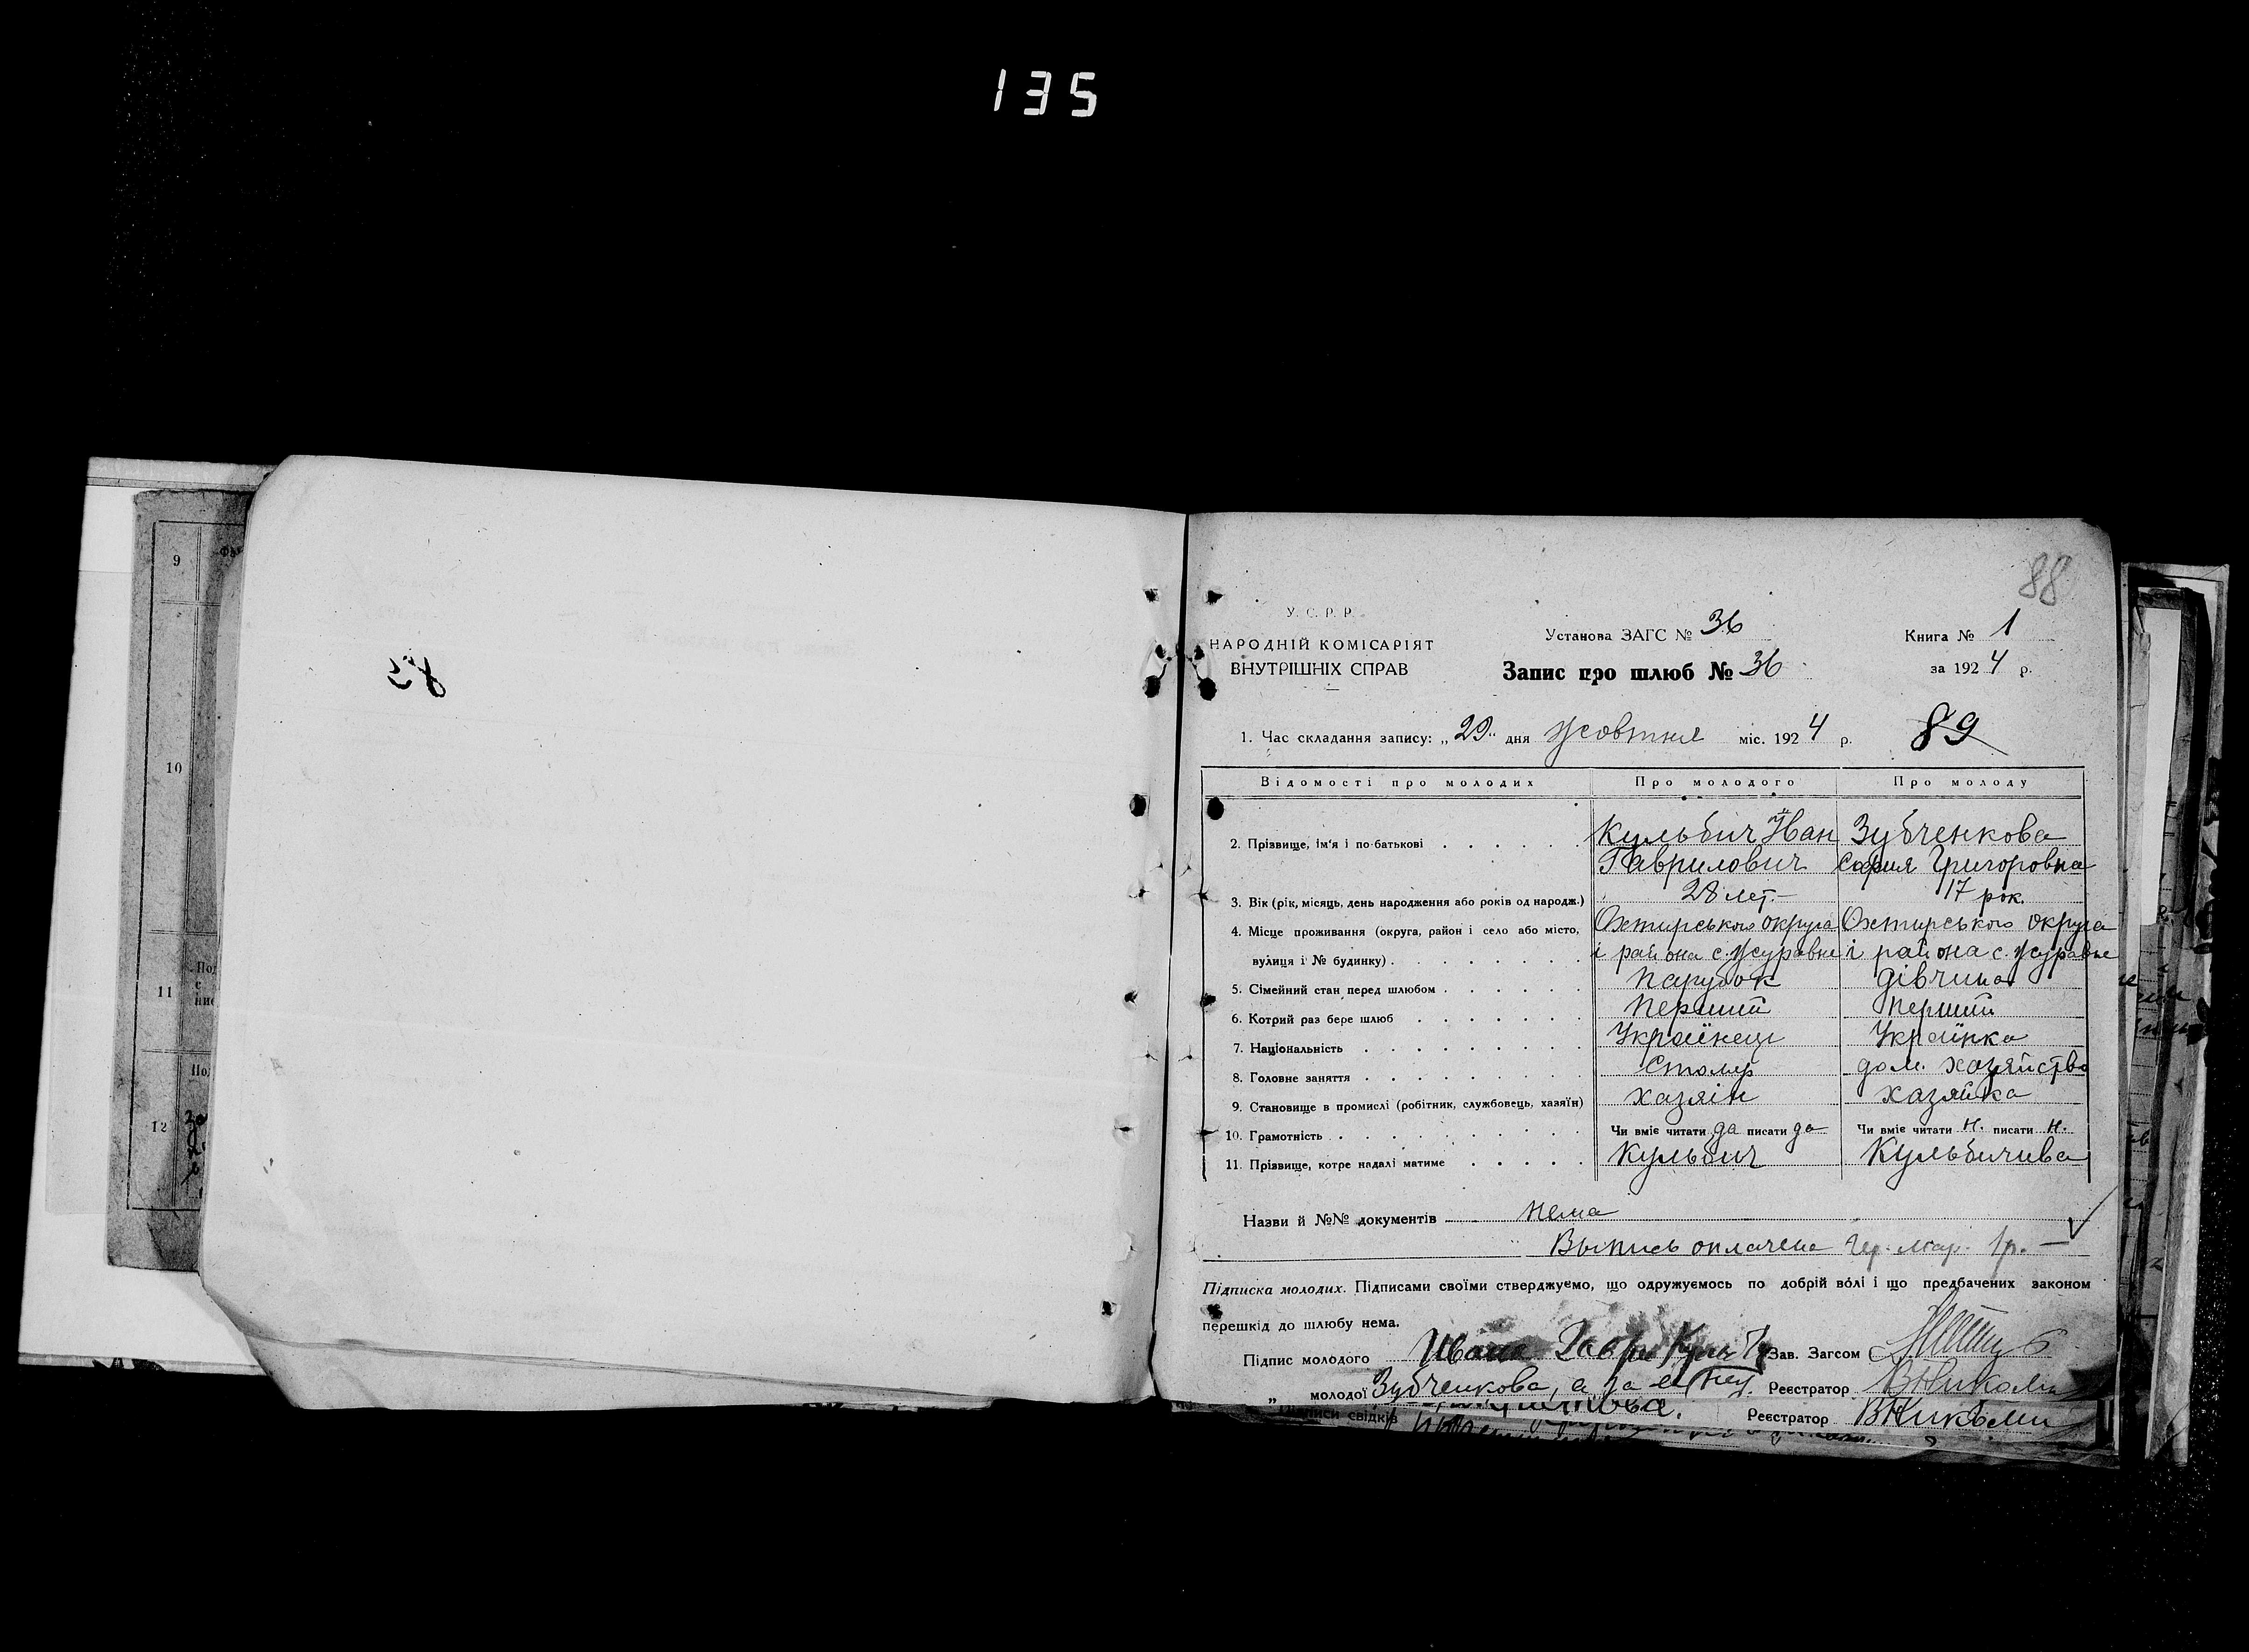 135
9
10
11
12
88
У. С. Р. Р.
НАРОДНІЙ КОМІСАРІЯТ
ВНУТРІШНІХ СПРАВ
Установа ЗАГС № 36
Запис про шлюб № 36
Книга № 1
за 1924 р.
1. Час складання запису: „29" дня жовтня міс. 1924 р.
89
Відомості про молодих Про молодого Про молоду
2. Прізвище, ім'я і по-батькові Кульбич Іван Зубченкова
Гаврилович София Григоровна
3. Вік (рік, місяць, день народження або років од народж.) 28 лет. 17 рок.
4. Місце проживання (округа, район і село або місто, Охтирського округа Охтирського округа
вулиця і № будинку) і района с. Журавне і района с. Журавне
5. Сімейний стан перед шлюбом парубок дівчина
6. Котрий раз бере шлюб перший перший
7. Національність Українець Українка
8. Головне заняття Столяр дом. хозяйство
9. Становище в промислі (робітник, службовець, хазяїн) хазяін хазяйка
10. Грамотність Чи вміє читати да писати да Чи вміє читати н. писати н.
11. Прізвище, котре надалі матиме Кульбич Кульбичива
Назви й №№ документів нема
Выпись оплачена 1р.
Підписка молодих. Підписами своїми стверджуємо, що одружуємось по добрій волі і що предбачених законом
перешкід до шлюбу нема.
Підпис молодого Зав. Загсом
„ молодої Зубченкова, а за Реєстратор
Підписи свідків Реєстратор